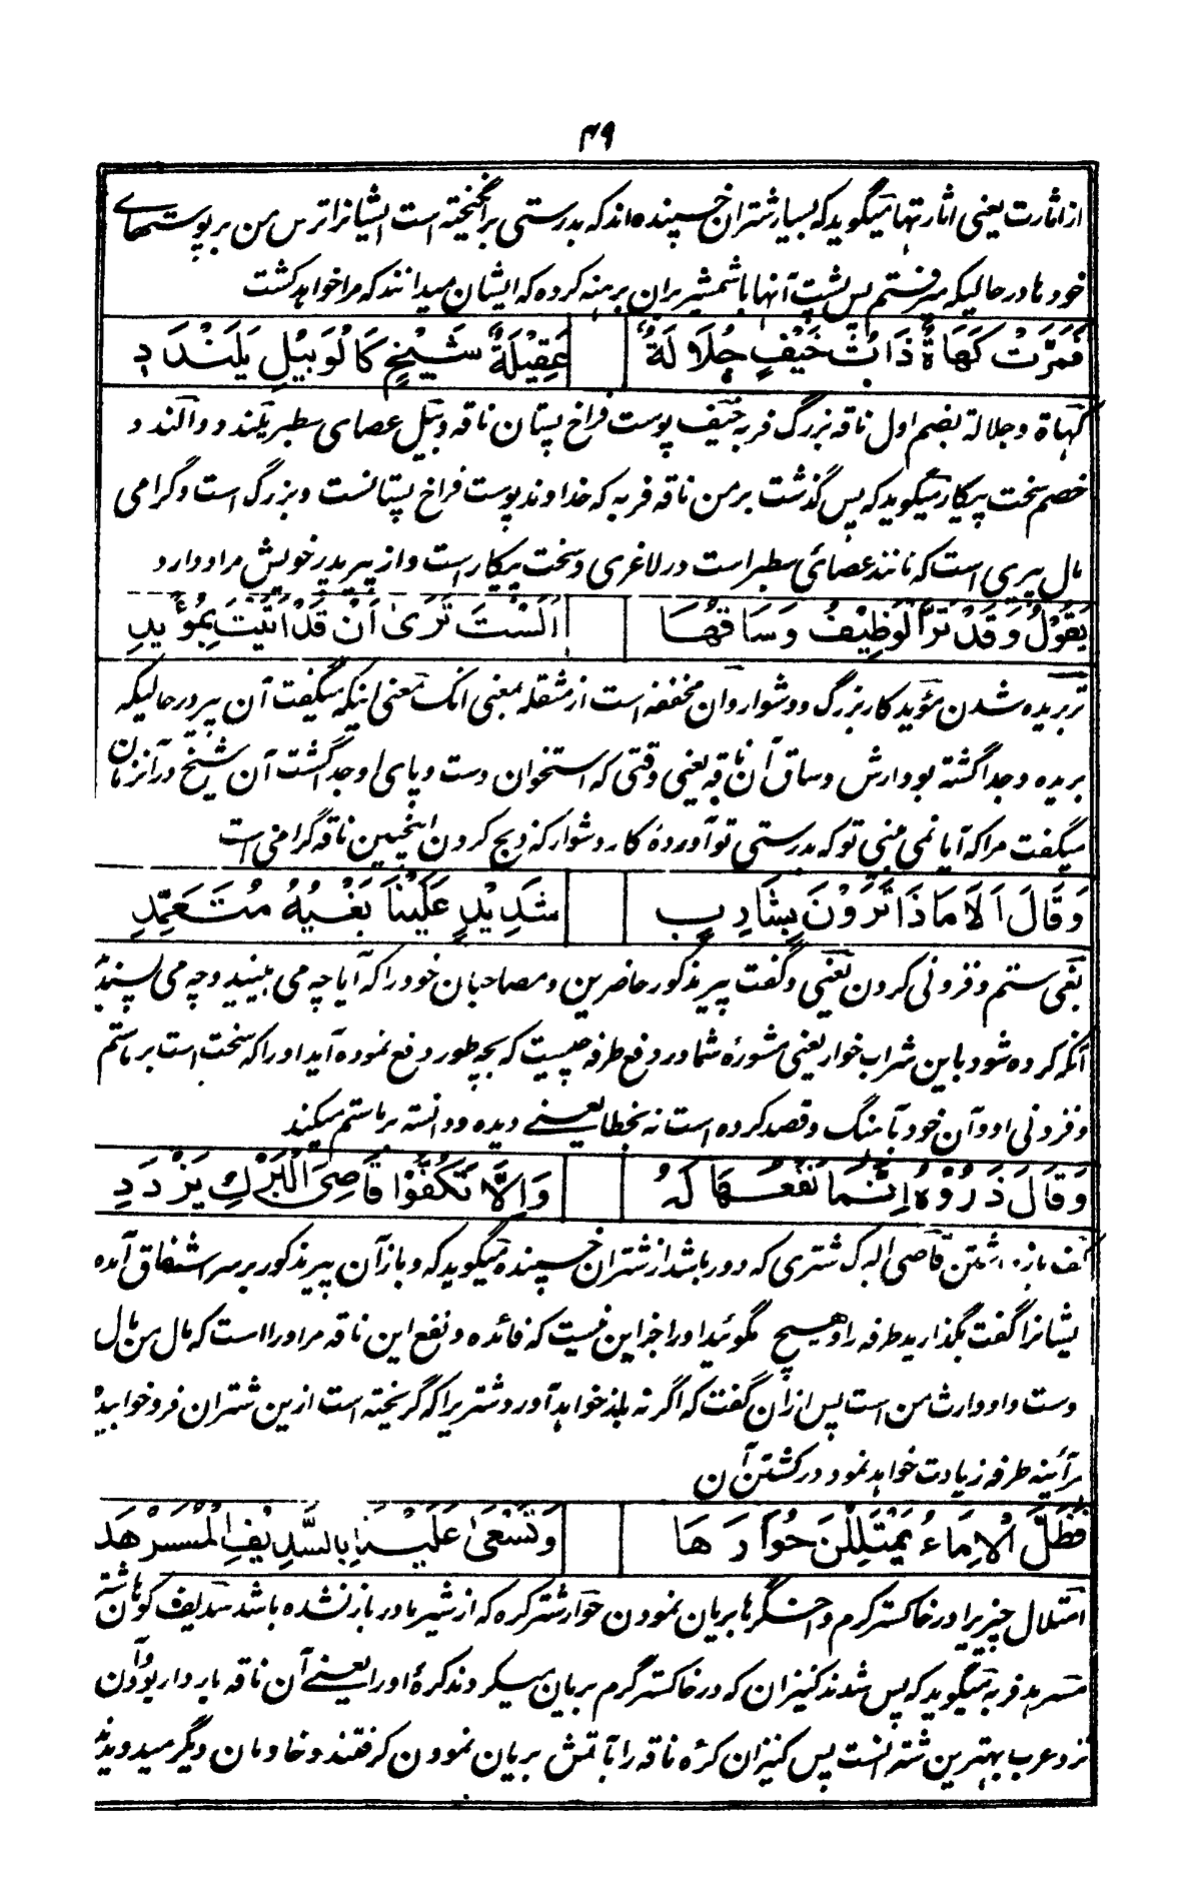 ۴۹
از اثارت یعنی اثارتها میگوید که بسیار شتران خسپنده اند که بدرستی برانگیخته است ایشانرا ترس من بر پوستهای
خودها در حالیکه میرفتم پس پشت آنها با شمشیر بران برهنه کرده که ایشان میدانند که مرا خواهد کشت
فَمَرَّتْ كَهَاةٌ ذَاتُ خَيْفٍ جُلَالَةٌ عَقِيْلَةُ شَيْخٍ كَالْوَبِيْلِ يَلَنْدَدِ
کهاة و جلالة بضم اول ناقه بزرگ فربه خیف پوست فراخ پستان ناقه وبیل عصای سطبر یلندد و الندد
خصم سخت پیکار میگوید که پس گذشت بر من ناقه فربه که خداوند پوست فراخ پستانست و بزرگ است و گرامی
مال پیری است که مانند عصائی سطبر است در لاغری و سخت پیکار است و از پیر پدر خویش مراد دارد
يَقُوْلُ وَقَدْ تَرَّ الْوَظِيْفُ وَسَاقُهَا اَلَسْتَ تَرَىٰ اَنْ قَدْ اَتَيْتَ بِمُؤْيِدِ
تر بریده شدن مؤید کار بزرگ و دشوار وان مخففه است از مثقله بمعنی انک معنی اینکه میگفت آن پیر در حالیکه
بریده و جدا گشته بود ارش و ساق آن ناقه یعنی وقتی که استخوان دست و پای او جدا گشت آن شیخ در آنزمان
میگفت مرا که آیا نمی بینی تو که بدرستی تو آوردهٔ کار دشوار که ذبح کردن اینچنین ناقه گرامی است
وَقَالَ اَلَا مَاذَا تَرَوْنَ بِشَارِبٍ شَدِيْدٍ عَلَيْنَا بَغْيُهُ مُتَعَمِّدِ
بغی ستم و فزونی کردن یعنی و گفت پیر مذکور حاضرین و مصاحبان خود را که آیا چه می بینید و چه می پسندید
آنکه کرده شود باین شراب خوار یعنی مشورهٔ شما در دفع طرفه چیست که بچه طور دفع نموده آید او را که سخت است بر ما ستم
و فزونی او و آن خود بآهنگ و قصد کرده است نه بخطا یعنے دیده و دانسته بر ما ستم میکند
وَقَالَ ذَرُوْهُ اِنَّمَا نَفْعُهَا لَهُ وَاِلَّا تَكُفُّوْا قَاصِيَ الْبَرْكِ يَزْدَدِ
کف باز داشتن قاصی البرک شتری که دور باشد از شتران خسپنده میگوید که و باز آن پیر مذکور بر سر اشفاق آمده
یشانرا گفت بگذارید طرفه را و هیچ مگوئید او را جز این نیست که فائده و نفع این ناقه مر او را است که مال من مال
وست و او وارث من است پس ازان گفت که اگر نه باز خواهد آورد شتریرا که گریخته است ازین شتران فرو خوابیده
هر آئینه طرفه زیادت خواهد نمود در کشتن آن
فَظَلَّ الْاِمَاءُ يَمْتَلِلْنَ حُوَارَهَا وَتَسْعَىٰ عَلَيْنَا بِالسَّدِيْفِ الْمُسَرْهَدِ
امتلال چیزیرا در خاکستر گرم و اخگرها بریان نمودن حوار شتر کره که از شیر مادر باز نشده باشد سدیف کوهان شتر
مسرهد فربه میگوید که پس شدند کنیزان که در خاکستر گرم بریان میکردند کرهٔ او را یعنے آن ناقه باردار بود و آن
نزد عرب بهترین شترانست پس کنیزان کرّه ناقه را بآتش بریان نمودن گرفتند و خادمان دیگر میدویدند